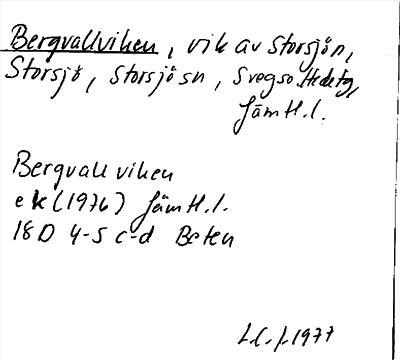 Bergvallviken, vik av Storsjön,
Storsjö, Storsjö sn, Svegs o. Hedetg,
Jämtl.l.
Bergvallviken
ek (1976) Jämtl.l.
18D 4-5 c-d Beten
L.C.J. 1977